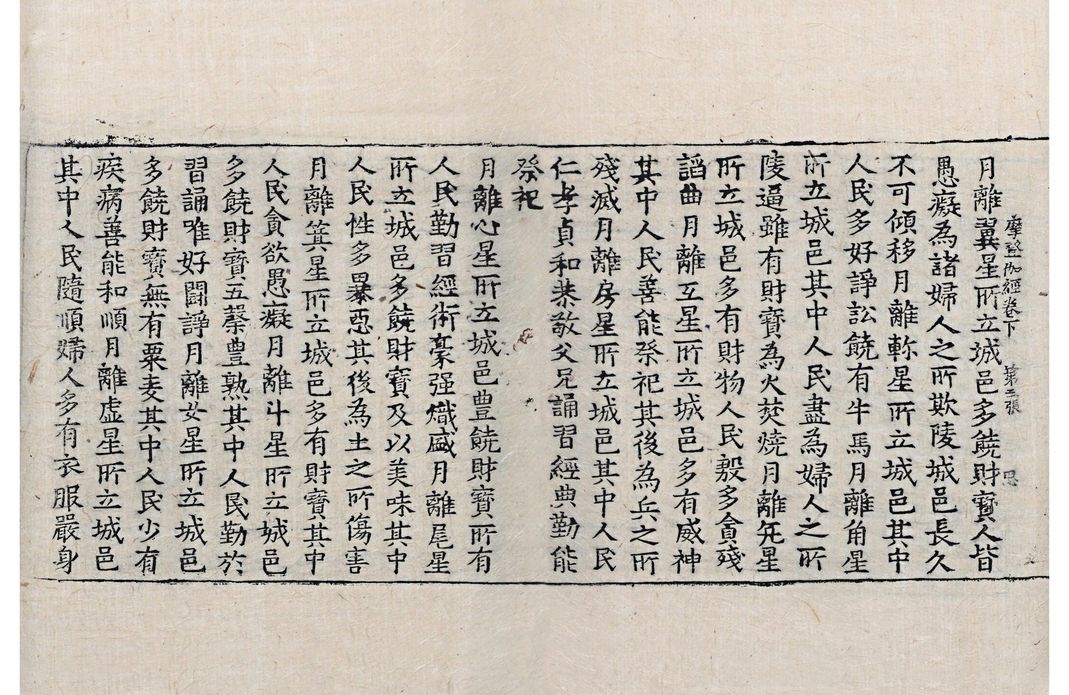 摩登伽經卷下　第三張　思
月離翼星所立城邑多饒財寶人皆
愚癡為諸婦人之所欺陵城邑長久
不可傾移月離軫星所立城邑其中
人民多好諍訟饒有牛馬月離角星
所立城邑其中人民盡為婦人之所
陵逼雖有財寶為火焚燒月離亢星
所立城邑多有財物人民慤多貪殘
謟曲月離互星所立城邑多有威神
其中人民善能祭祀其後為兵之所
殘滅月離房星所立城邑其中人民
仁孝貞和恭敬父兄誦習經典勤能
祭祀
月離心星所立城邑豊饒財寶所有
人民勤習經術豪强熾盛月離尾星
所立城邑多饒財寶及以美味其中
人民性多暴惡其後為土之所傷害
月離箕星所立城邑多有財寶其中
人民貪欲愚癡月離斗星所立城邑
多饒財寶五糓豊熟其中人民勤於
習誦唯好鬪諍月離女星所立城邑
多饒財寶無有粟麦其中人民少有
疾病善能和順月離虛星所立城邑
其中人民隨順婦人多有衣服嚴身